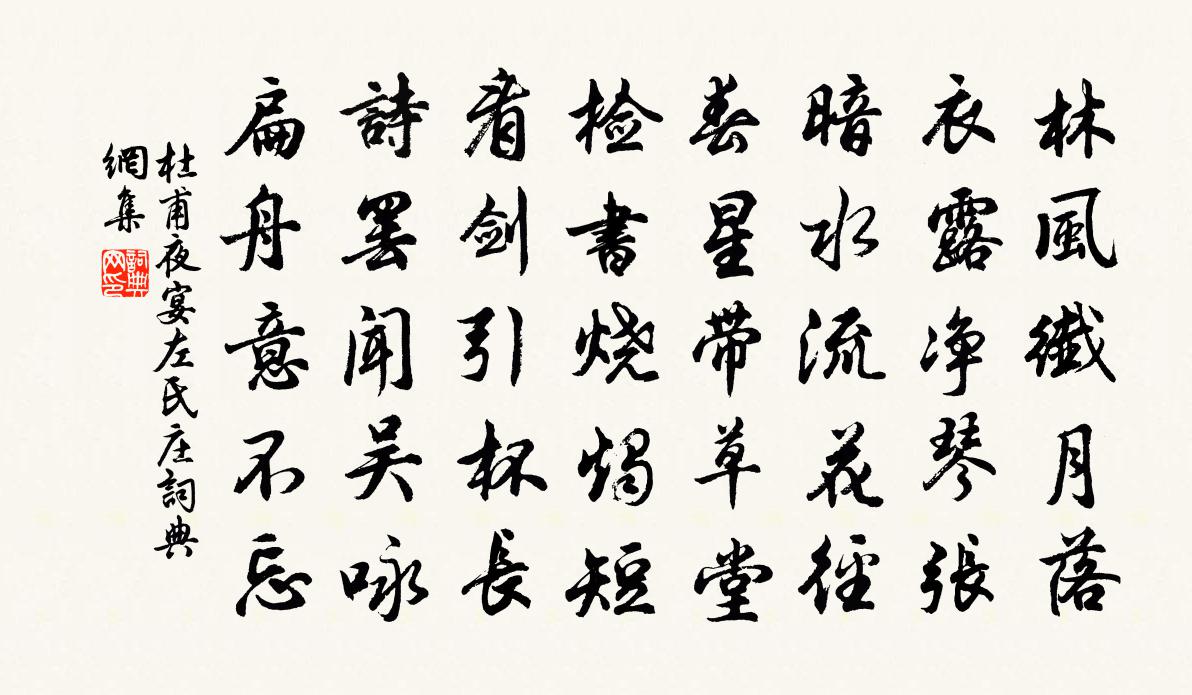 林風纖月落
衣露净琴張
暗水流花徑
春星带草堂
檢書烧燭短
看劍引杯長
詩罢聞吴咏
扁舟意不忘
杜甫夜宴左氏庄詞典
網集
詞典
网印